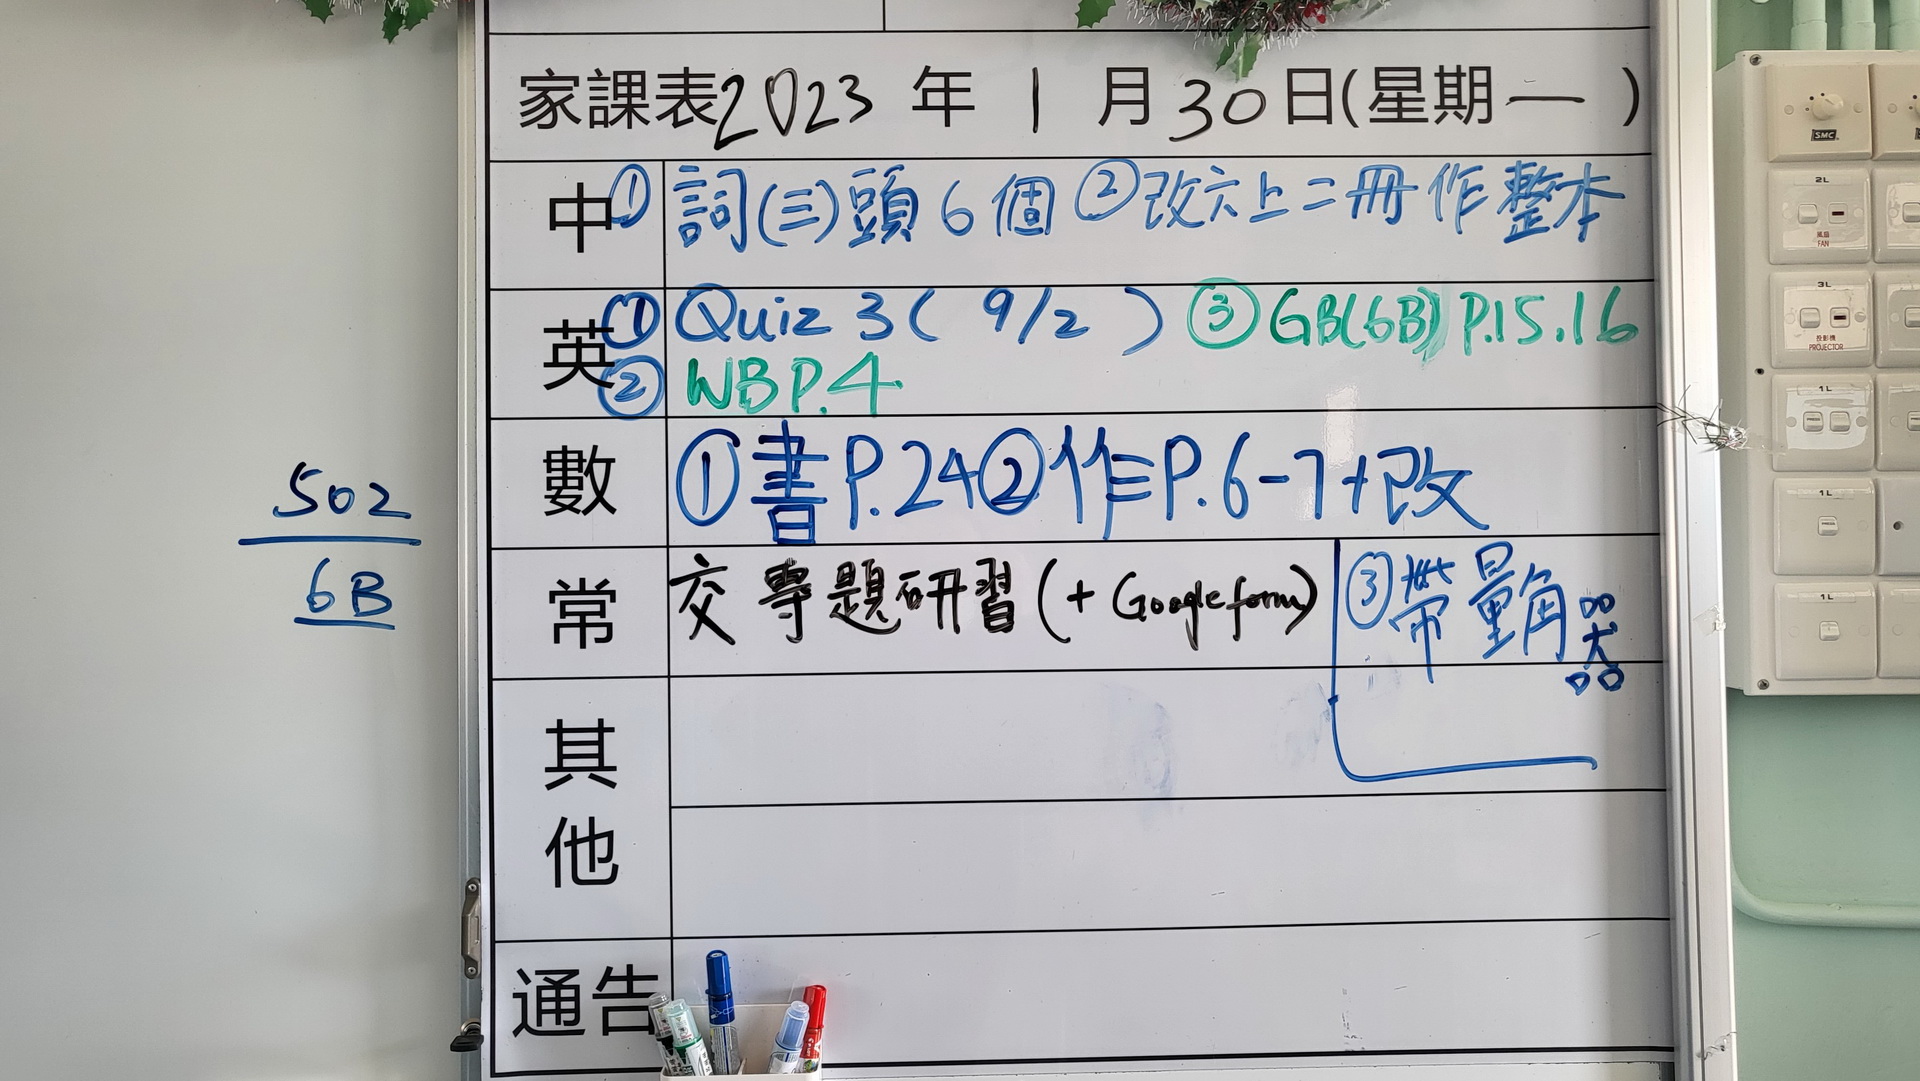 家課表2023年1月30日(星期一)
中 ① 詞(三)頭6個 ② 改六上二冊作整本
英 ① Quiz 3 ( 9/2 ) ③ GB(6B) P.15.16
② WB P.4
數 ① 書P.24 ② 作P.6-7+改
常 交專題研習(+ Google form) ③ 帶量角器
其他
通告
502
6B
SMC
2L
風扇
FAN
3L
投影機
PROJECTOR
1L
1L
1L